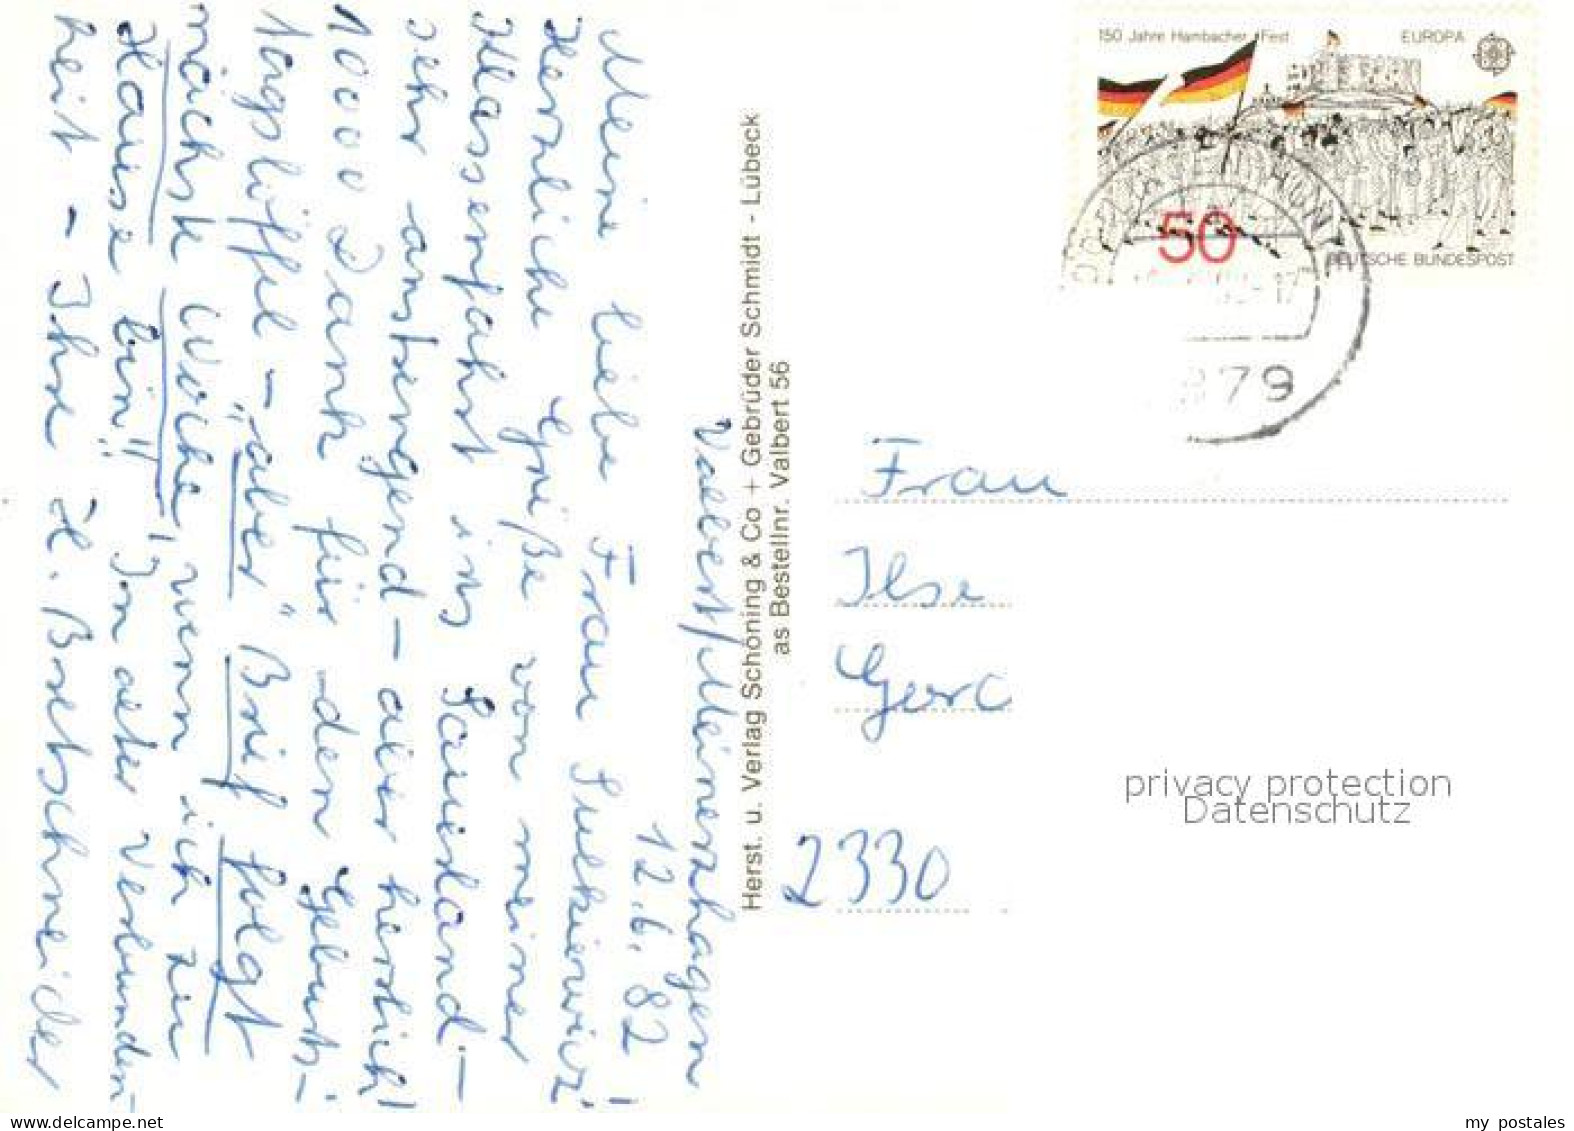 Valbert/Meinerzhagen
12.6.82
Meine liebe Frau
Herzliche Grüße von meiner
Klassenfahrt ins Sauerland -
sehr anstrengend - aber herzlich
10000 Dank für den Geburts-
tagslöffel - "aber" Brief folgt
nächste Woche, wenn ich zu
Hause bin!! In alter Verbunden-
heit - Ihre H. Bretschneider
Herst. u. Verlag Schöning & Co + Gebrüder Schmidt - Lübeck
as Bestellnr. Valbert 56
150 Jahre Hambacher Fest
EUROPA
50
DEUTSCHE BUNDESPOST
879
Frau
Ilse
2330
privacy protection
Datenschutz
my postales